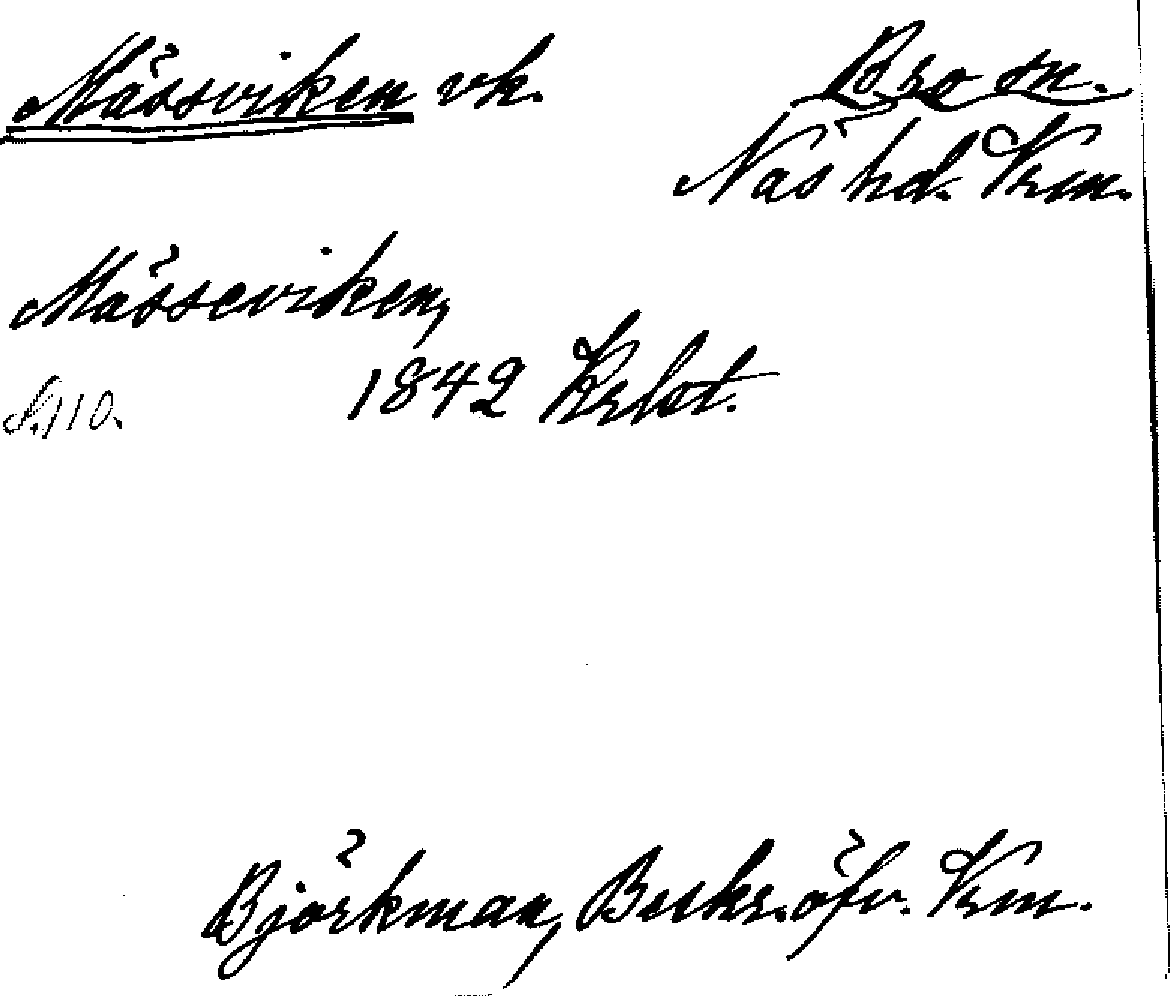 Mässviken vk. Bro sn.
Näs hd. Vrm.
Mässeviken,
1842 Krlst.
S. 110.
Björkman, Beskr. öfv. Vrm.